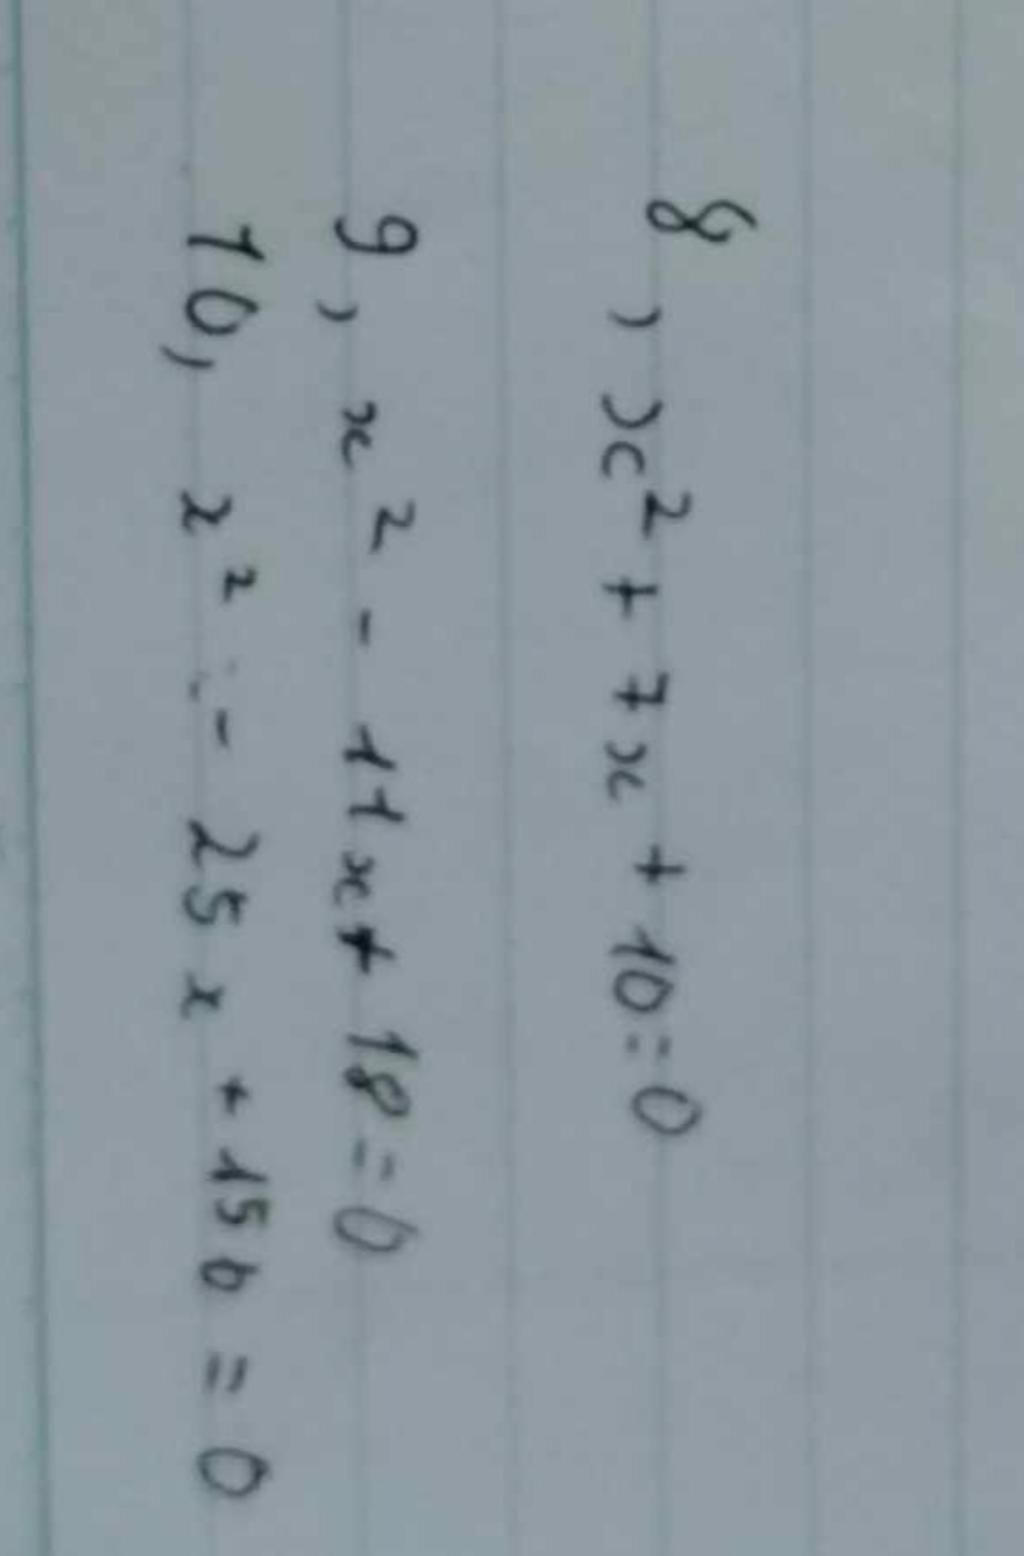 8, x² + 7x + 10 = 0
9, x² - 11x + 18 = 0
10, x² - 25x + 150 = 0